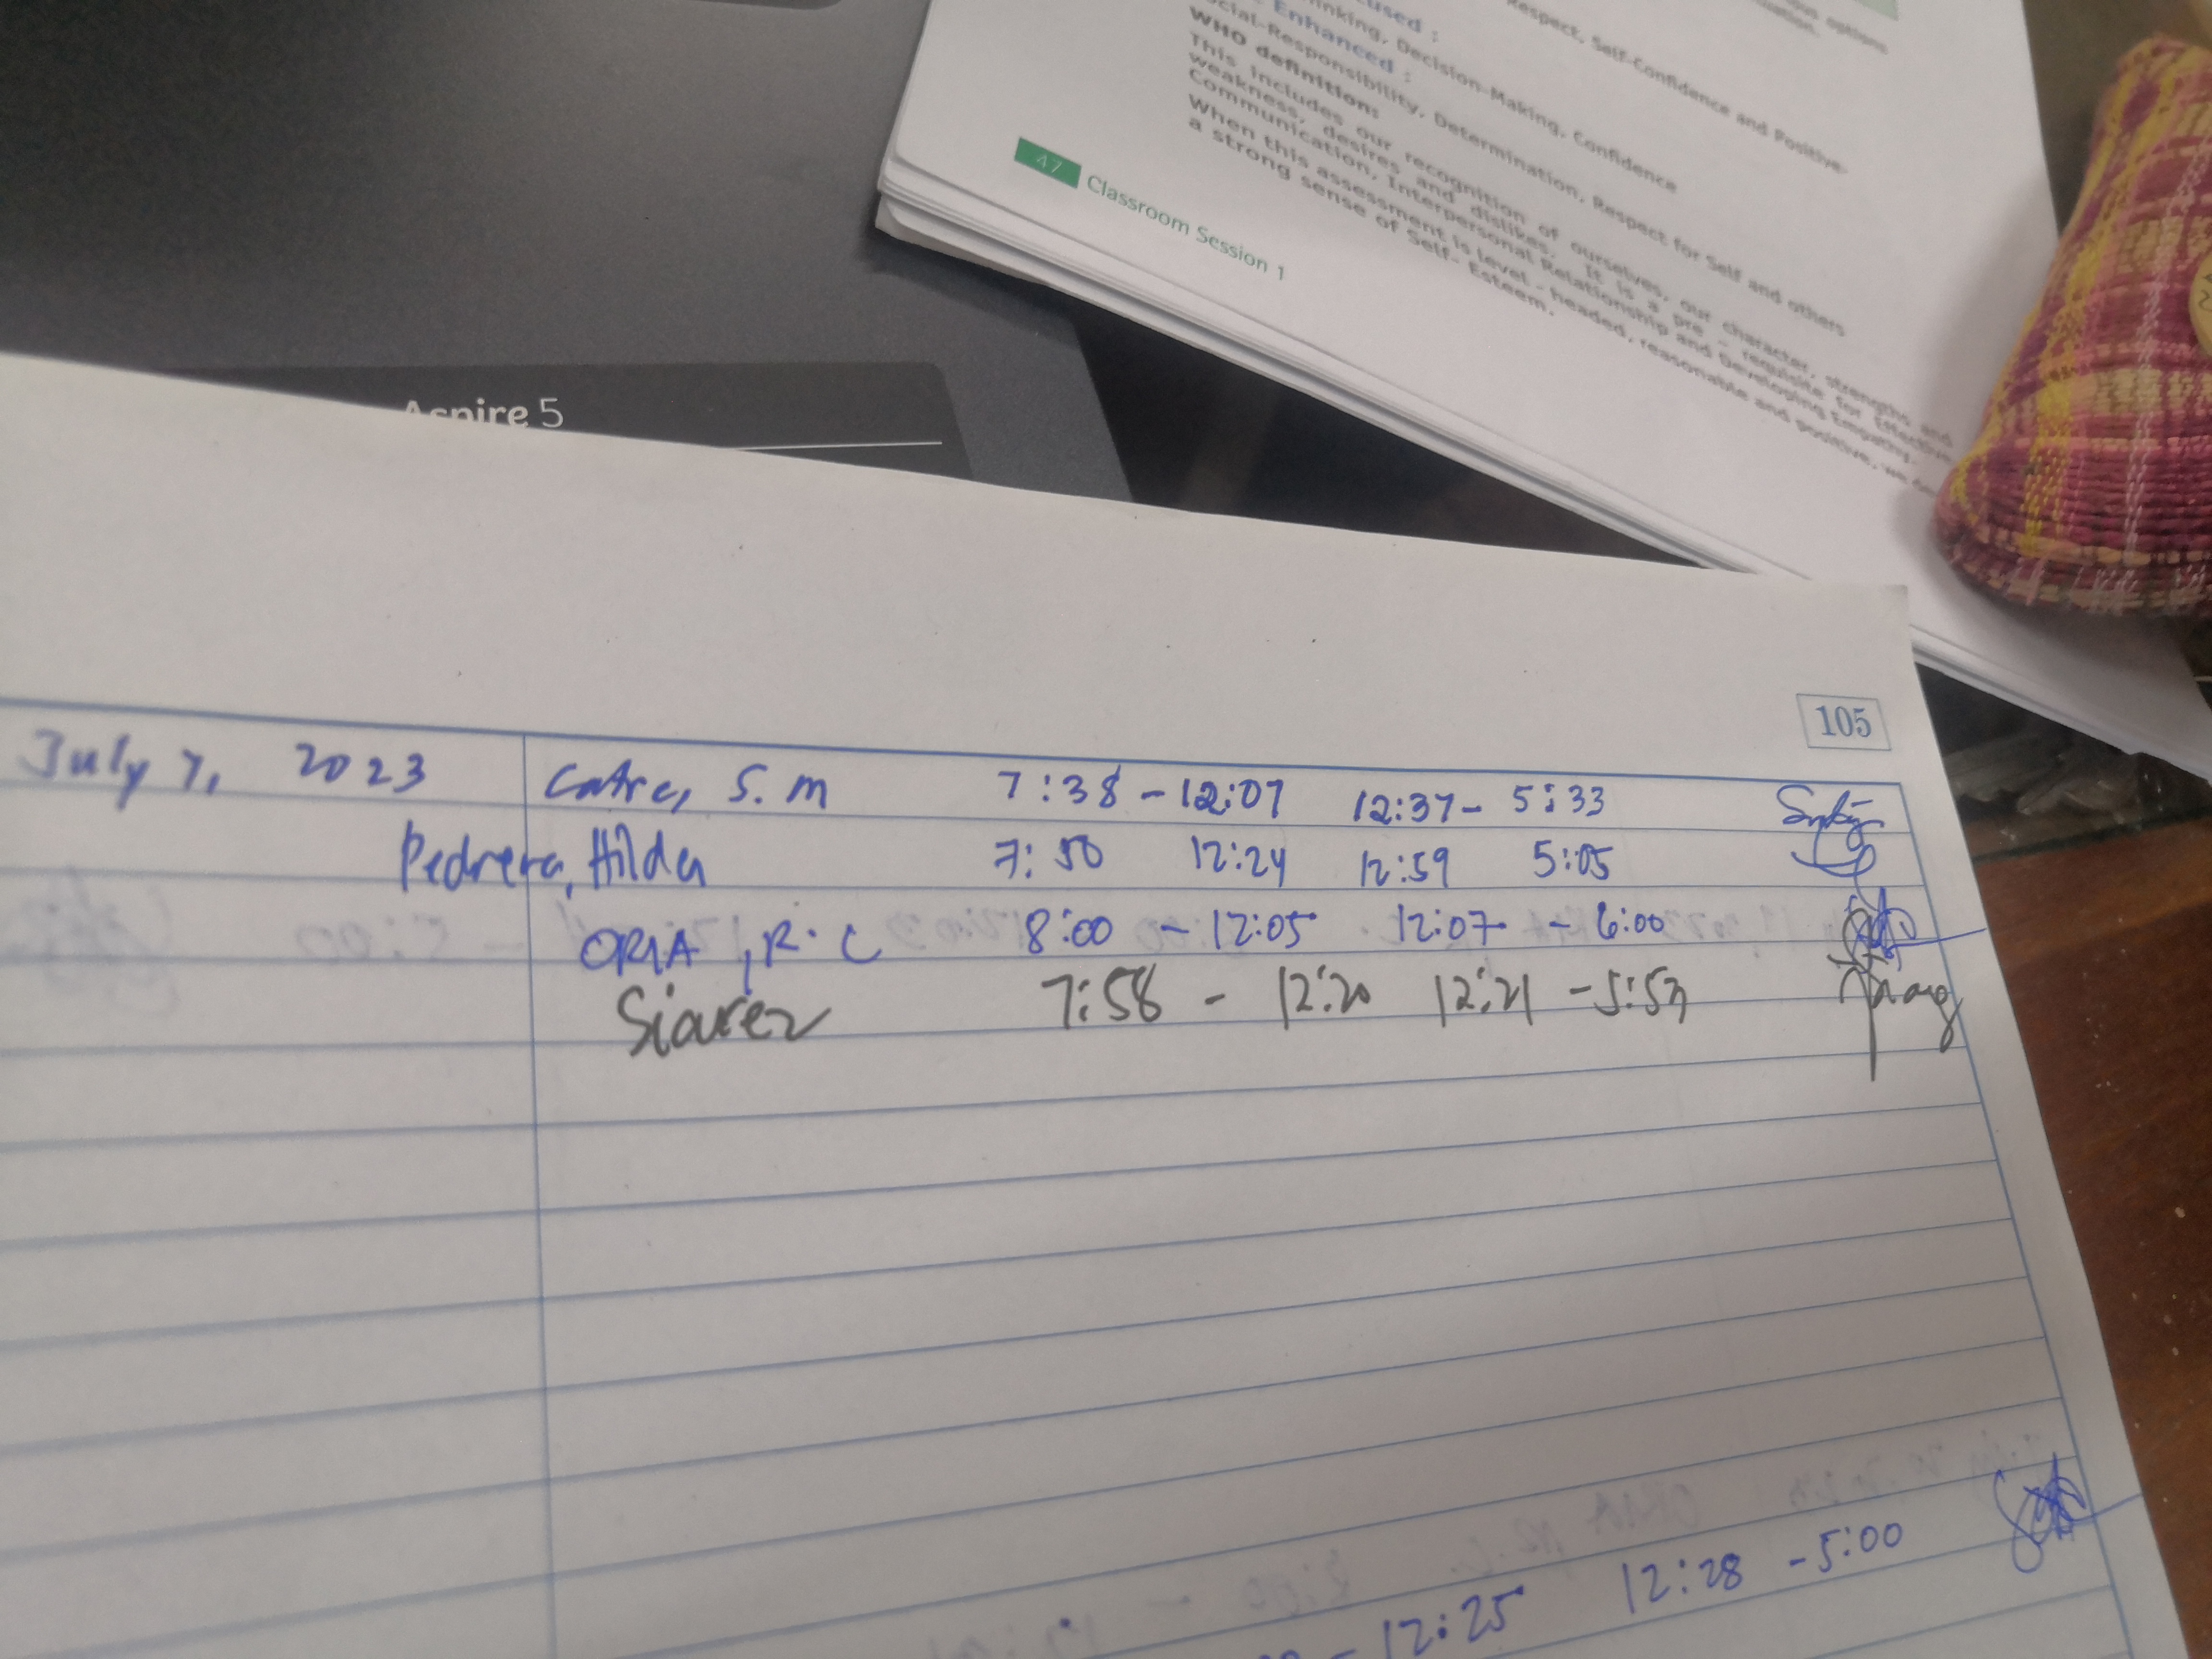 Respect, Self-Confidence and Positive-
Thinking, Decision-Making, Confidence
Enhanced :
Social-Responsibility, Determination, Respect for Self and others
WHO definition:
This includes our recognition of ourselves, our character, strengths and
weakness, desires and dislikes. It is a pre - requisite for Effective
Communication, Interpersonal Relationship and Developing Empathy.
When this assessment is level - headed, reasonable and positive, we
a strong sense of Self- Esteem.
47 Classroom Session 1
Aspire 5
105
July 7, 2023 S. M 7:38 - 12:07 12:37 - 5:33
Pedrera, Hilda 7:50 12:24 12:59 5:05
ORIA, R. C 8:00 - 12:05 12:07 - 6:00
Siarez 7:58 - 12:20 12:21 - 5:53
- 12:25 12:28 - 5:00